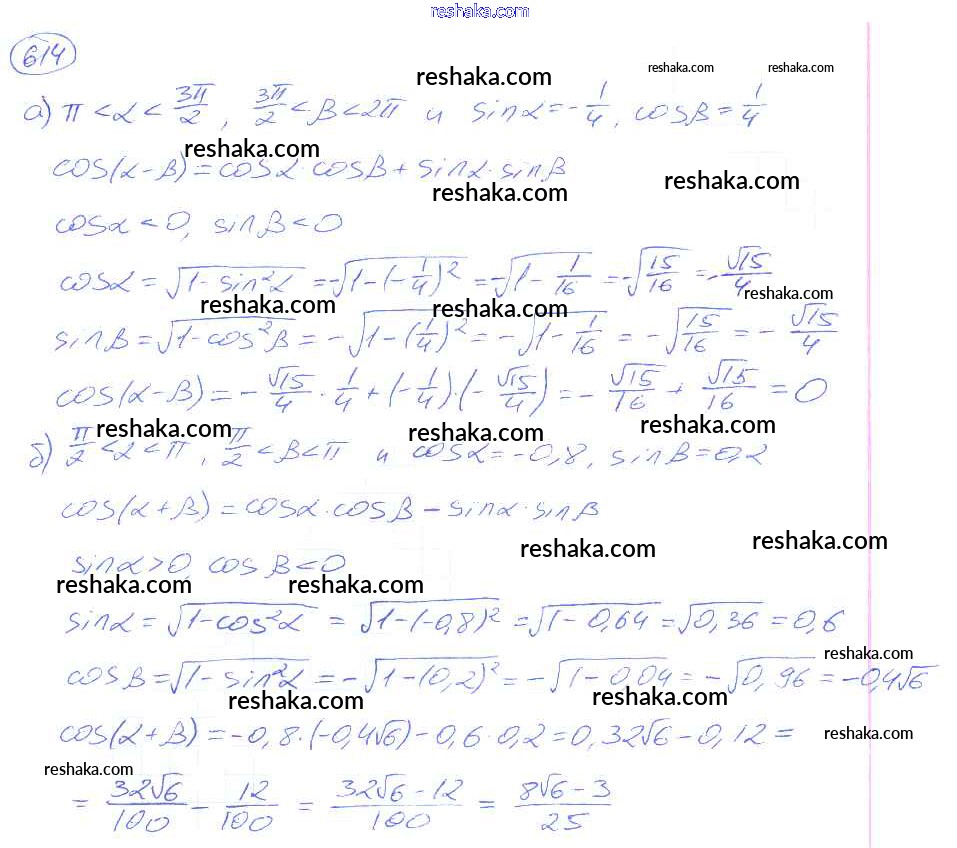 reshaka.com
614
reshaka.com reshaka.com reshaka.com
а) π < α < 3π/2, 3π/2 < β < 2π и sinα = -1/4, cosβ = 1/4
reshaka.com
cos(α-β) = cosα·cosβ + sinα·sinβ
reshaka.com reshaka.com
cosα < 0, sinβ < 0
cosα = √(1-sin²α) = -√(1-(-1/4)²) = -√(1-1/16) = -√(15/16) = -√15/4
reshaka.com reshaka.com reshaka.com
sinβ = √(1-cos²β) = -√(1-(1/4)²) = -√(1-1/16) = -√(15/16) = -√15/4
cos(α-β) = -√15/4 · 1/4 + (-1/4)·(-√15/4) = -√15/16 + √15/16 = 0
reshaka.com reshaka.com reshaka.com
б) π/2 < α < π, π/2 < β < π и cosα = -0,8, sinβ = 0,2
cos(α+β) = cosα·cosβ - sinα·sinβ
reshaka.com reshaka.com
sinα > 0, cosβ < 0
reshaka.com reshaka.com
sinα = √(1-cos²α) = √(1-(-0,8)²) = √(1-0,64) = √0,36 = 0,6
reshaka.com
cosβ = √(1-sin²α) = -√(1-(0,2)²) = -√(1-0,04) = -√0,96 = -0,4√6
reshaka.com reshaka.com
cos(α+β) = -0,8·(-0,4√6) - 0,6·0,2 = 0,32√6 - 0,12 =
reshaka.com
reshaka.com
= 32√6/100 - 12/100 = (32√6-12)/100 = (8√6-3)/25